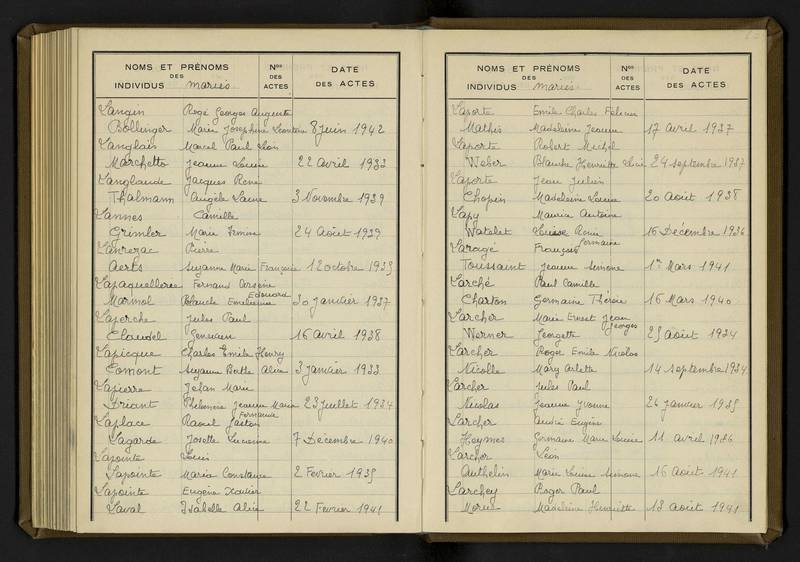 NOMS ET PRÉNOMS
DES
INDIVIDUS mariés
Nos
DES
ACTES
DATE
DES ACTES
Langin Rogé Georges Auguste
Bollinger Marie Josephine Leontine 8 Juin 1942
Langlais Marcel Paul Léon
Marchetto Jeanne Louise 22 avril 1933
Langlaude Jacques René
Thalmann Angèle Laure 3 Novembre 1939
Lannes Camille
Grimler Marie Irmine 24 août 1929
Lanrezac Pierre
Aerts Suzanne Marie Françoise 12 octobre 1935
Lapaquellerie Fernand Arsène
Edouard
Marmol Blanche Emilienne 30 janvier 1937
Laperche Jules Paul
Claudel Genevieve 16 avril 1938
Lapicque Charles Emile Henry
Comont Suzanne Berthe Alice 3 janvier 1933
Lapierre Jehan Marie
Friant Philomène Jeanne Marie 23 juillet 1934
Fernande
Laplace Raoul Gaston
Lagarde Josette Lucienne 7 Décembre 1940
Lapointe Louis
Lapointe Maria Constance 2 Fevrier 1935
Lapointe Eugène Xavier
Laval Isabelle Alice 22 Fevrier 1941
NOMS ET PRÉNOMS
DES
INDIVIDUS mariés
Nos
DES
ACTES
DATE
DES ACTES
Laporte Emile Charles Félicien
Mathis Madeleine Jeanne 17 avril 1937
Laporte Robert Michel
Weber Blanche Henriette 24 septembre 1937
Laporte Jean Julien
Chopin Madeleine Louise 20 août 1938
Lapy Maurice Antoine
Watelet Louise Renée 16 Décembre 1936
Germaine
Laragé François
Toussaint Jeanne Simone 1er Mars 1941
Larché Paul Camille
Charton Germaine Thérèse 16 Mars 1940
Larcher Marie Ernest Jean
Georges
Werner Georgette 25 août 1934
Larcher Roger Emile Nicolas
Nicolle Mary Arlette 14 septembre 1934
Larcher Jules Paul
Nicolas Jeanne Yvonne 26 janvier 1935
Larcher André Eugène
Heymes Germaine Marie Louise 11 avril 1936
Larcher Léon
Authelin Marie Louise Simone 16 août 1941
Larchey Roger Paul
Madeleine Henriette 13 août 1941